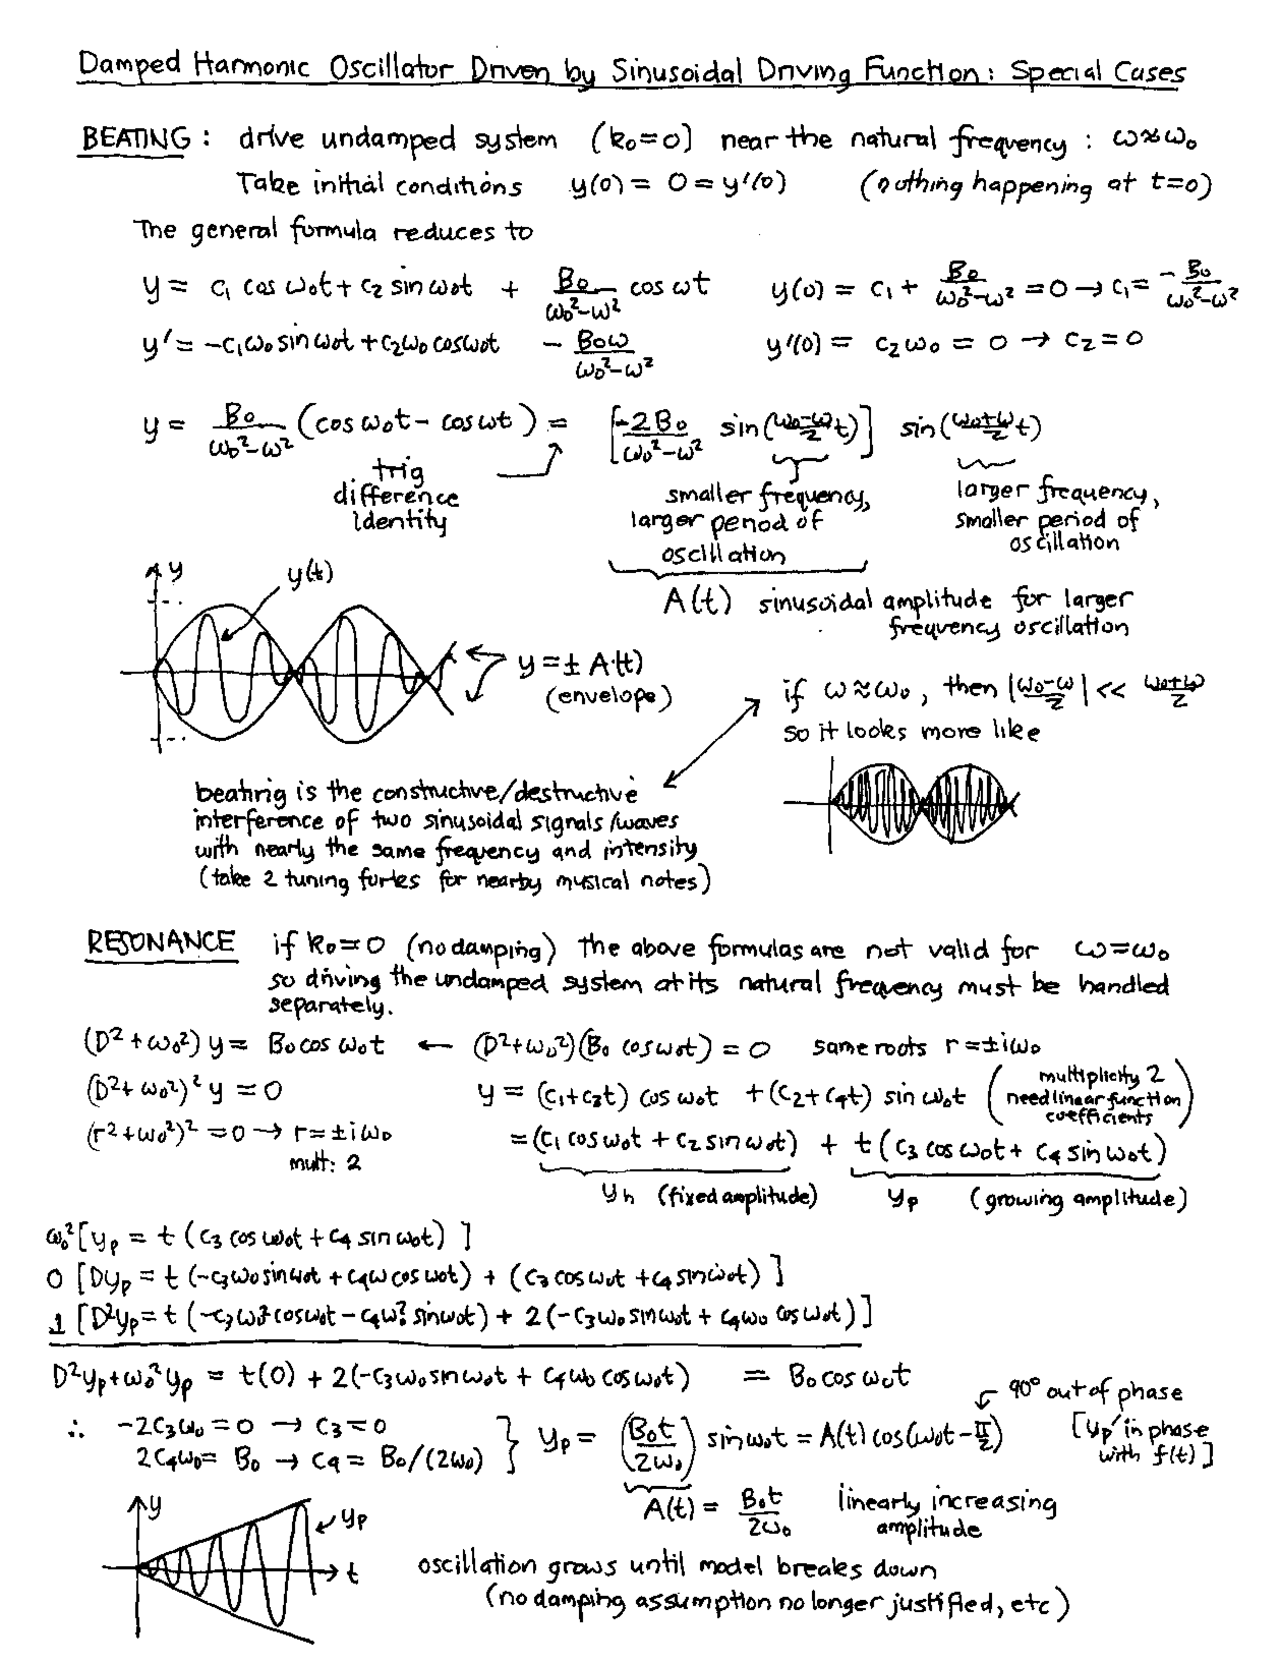 Damped Harmonic Oscillator Driven by Sinusoidal Driving Function: Special Cases
BEATING: drive undamped system (k₀=0) near the natural frequency: ω≈ω₀
Take initial conditions y(0) = 0 = y'(0) (nothing happening at t=0)
The general formula reduces to
y = c₁ cos ω₀t + c₂ sin ω₀t + B₀/(ω₀²-ω²) cos ωt y(0) = c₁ + B₀/(ω₀²-ω²) = 0 → c₁ = -B₀/(ω₀²-ω²)
y' = -c₁ω₀ sin ω₀t + c₂ω₀ cos ω₀t - B₀ω/(ω₀²-ω²) y'(0) = c₂ω₀ = 0 → c₂ = 0
y = B₀/(ω₀²-ω²) (cos ω₀t - cos ωt) = [-2B₀/(ω₀²-ω²) sin((ω₀-ω)/2 t)] sin((ω₀+ω)/2 t)
trig
difference
identity
smaller frequency,
larger period of
oscillation
larger frequency,
smaller period of
oscillation
A(t) sinusoidal amplitude for larger
frequency oscillation
y
y(t)
y = ± A(t)
(envelope)
if ω≈ω₀, then |(ω₀-ω)/2| << (ω₀+ω)/2
so it looks more like
beating is the constructive/destructive
interference of two sinusoidal signals/waves
with nearly the same frequency and intensity
(take 2 tuning forks for nearby musical notes)
RESONANCE if k₀=0 (no damping) the above formulas are not valid for ω=ω₀
so driving the undamped system at its natural frequency must be handled
separately.
(D²+ω₀²) y = B₀ cos ω₀t ← (D²+ω₀²)(B₀ cos ω₀t) = 0 same roots r = ±iω₀
(D²+ω₀²)² y = 0 y = (c₁+c₃t) cos ω₀t + (c₂+c₄t) sin ω₀t (multiplicity 2
need linear function
coefficients)
(r²+ω₀²)² = 0 → r = ±iω₀ = (c₁ cos ω₀t + c₂ sin ω₀t) + t (c₃ cos ω₀t + c₄ sin ω₀t)
mult: 2
yₕ (fixed amplitude) yₚ (growing amplitude)
ω₀² [yₚ = t (c₃ cos ω₀t + c₄ sin ω₀t) ]
0 [Dyₚ = t (-c₃ω₀ sin ω₀t + c₄ω cos ω₀t) + (c₃ cos ω₀t + c₄ sin ω₀t) ]
1 [D²yₚ = t (-c₃ω₀² cos ω₀t - c₄ω₀² sin ω₀t) + 2 (-c₃ω₀ sin ω₀t + c₄ω₀ cos ω₀t) ]
D²yₚ + ω₀²yₚ = t(0) + 2(-c₃ω₀ sin ω₀t + c₄ω₀ cos ω₀t) = B₀ cos ω₀t
90° out of phase
∴ -2c₃ω₀ = 0 → c₃ = 0
2c₄ω₀ = B₀ → c₄ = B₀/(2ω₀) } yₚ = (B₀t/2ω₀) sin ω₀t = A(t) cos(ω₀t - π/2) [yₚ' in phase
with f(t)]
A(t) = B₀t/2ω₀ linearly increasing
amplitude
y
yₚ
t
oscillation grows until model breaks down
(no damping assumption no longer justified, etc)